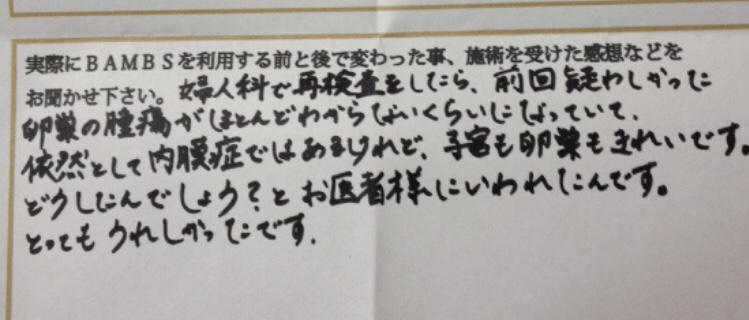 実際にBAMBSを利用する前と後で変わった事、施術を受けた感想などを
お聞かせ下さい。婦人科で再検査をしたら、前回疑わしかった
卵巣の腫瘍がほとんどわからないくらいになっていて、
依然として内膜症ではあるけれど、子宮も卵巣もきれいです。
どうしたんでしょう?とお医者様にいわれたんです。
とってもうれしかったです.